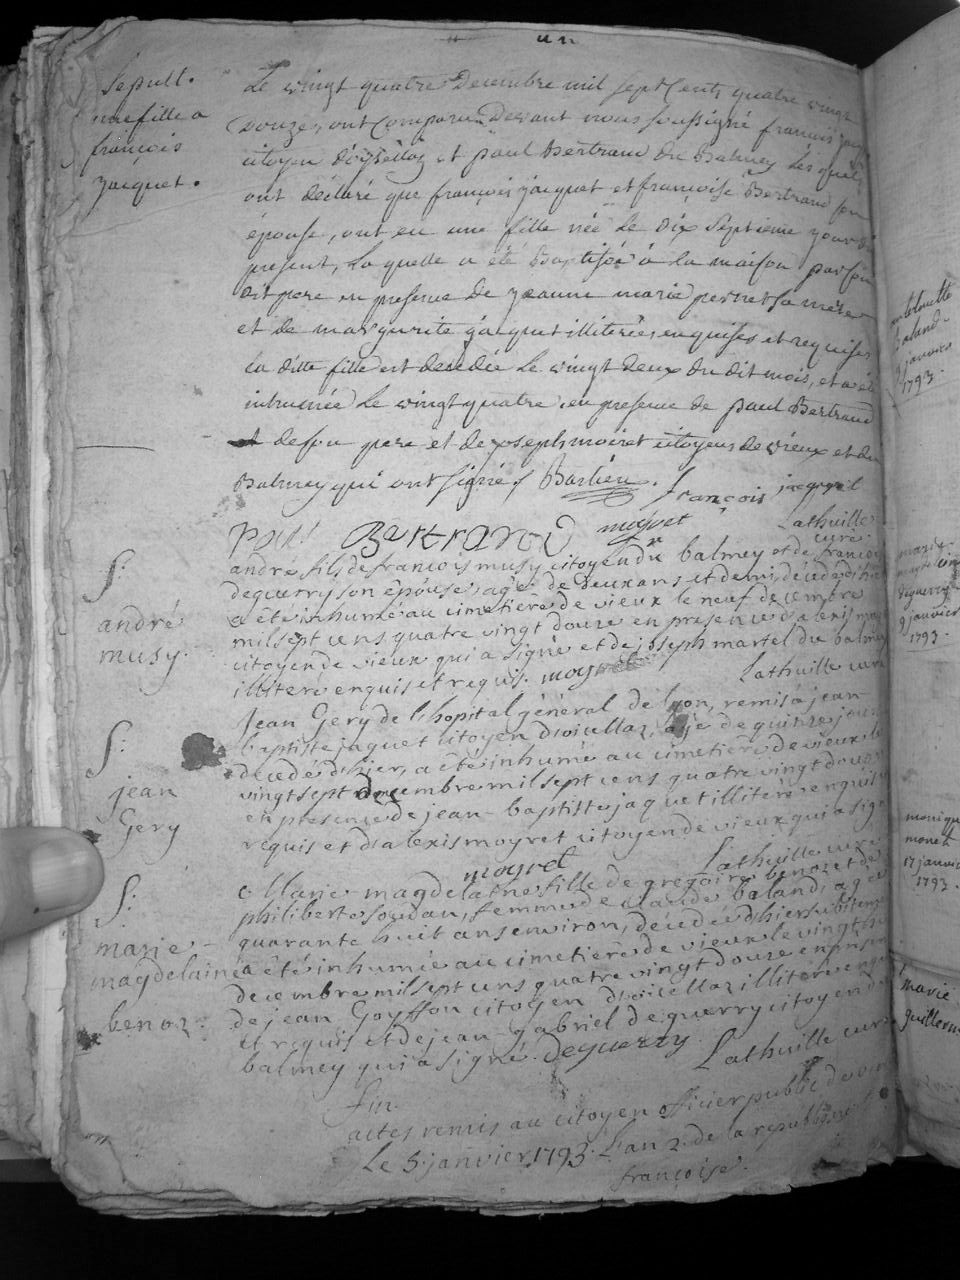 un
Sepult.
une fille a
françois
jacquet.
Le vingt quatre Decembre mil sept Cents quatre vingt
Douze, ont Comparu Devant nous soussigné francois
citoyen d'oisellaz et paul Bertrand du Balmey Lesquels
ont déclaré que françois jacquet et francoise Bertrand son
épouse, ont eu une fille née le Dix Septieme jour du
present, la quelle a été Baptisée à la maison par son
dit pere en presence de jeanne marie perret sa mere
et de margurite jacquet illiterées enquises et requises
la ditte fille est decedée le vingt deux du dit mois, et a été
inhumée le vingt quatre en presence de paul Bertrand
et de son pere et de joseph moiret citoyens de vieux et du
Balmey qui ont signé / Barlieu. françois jacquet
paul Bertrand moyret Lathuille curé
S.
andré
musy.
andré fils de francois musy citoyen du balmey et de françoise
deguerry son épouse, agé de deux ans et demi, décédé d'hier
a été inhumé au cimetière de vieux le neuf decembre
mil sept cens quatre vingt douze en presence d'alexis moyret
citoyen de vieux qui a signé et de joseph martel du balmey
illiteré enquis et requis. moyret Lathuille curé
S.
jean
Gery
Jean Gery de l'hopital général de lyon, remis à jean
baptiste jaquet citoyen d'oisellaz, agé de quinze jours
décédé d'hier, a été inhumé au cimetière de vieux le
vingt sept decembre mil sept cens quatre vingt douze
en presence de jean-baptiste jaquet illiteré enquis
requis et d'alexis moyret citoyen de vieux qui a signé
moyret Lathuille curé
S.
marie-
magdelaine
benoz.
Marie-magdelaine fille de gregoire benoz et de
philiberte soudan, femme de claude baland, agée
quarante huit ans environ, décédée d'hier subitement
a été inhumée au cimetière de vieux le vingt huit
decembre mil sept cens quatre vingt douze en presence
de jean Goyffon citoyen d'oisellaz illiteré enquis
et requis et de jean gabriel deguerry citoyen du
balmey qui a signé. Deguerry Lathuille curé
fin.
actes remis au citoyen officier public de vieux
Le 5 janvier 1793. L'an 2. de la republique
françoise.
baland.
janvier
1793.
marie
deguerry
9 janvier
1793.
monique
monet
17 janvier
1793.
marie
guillerm